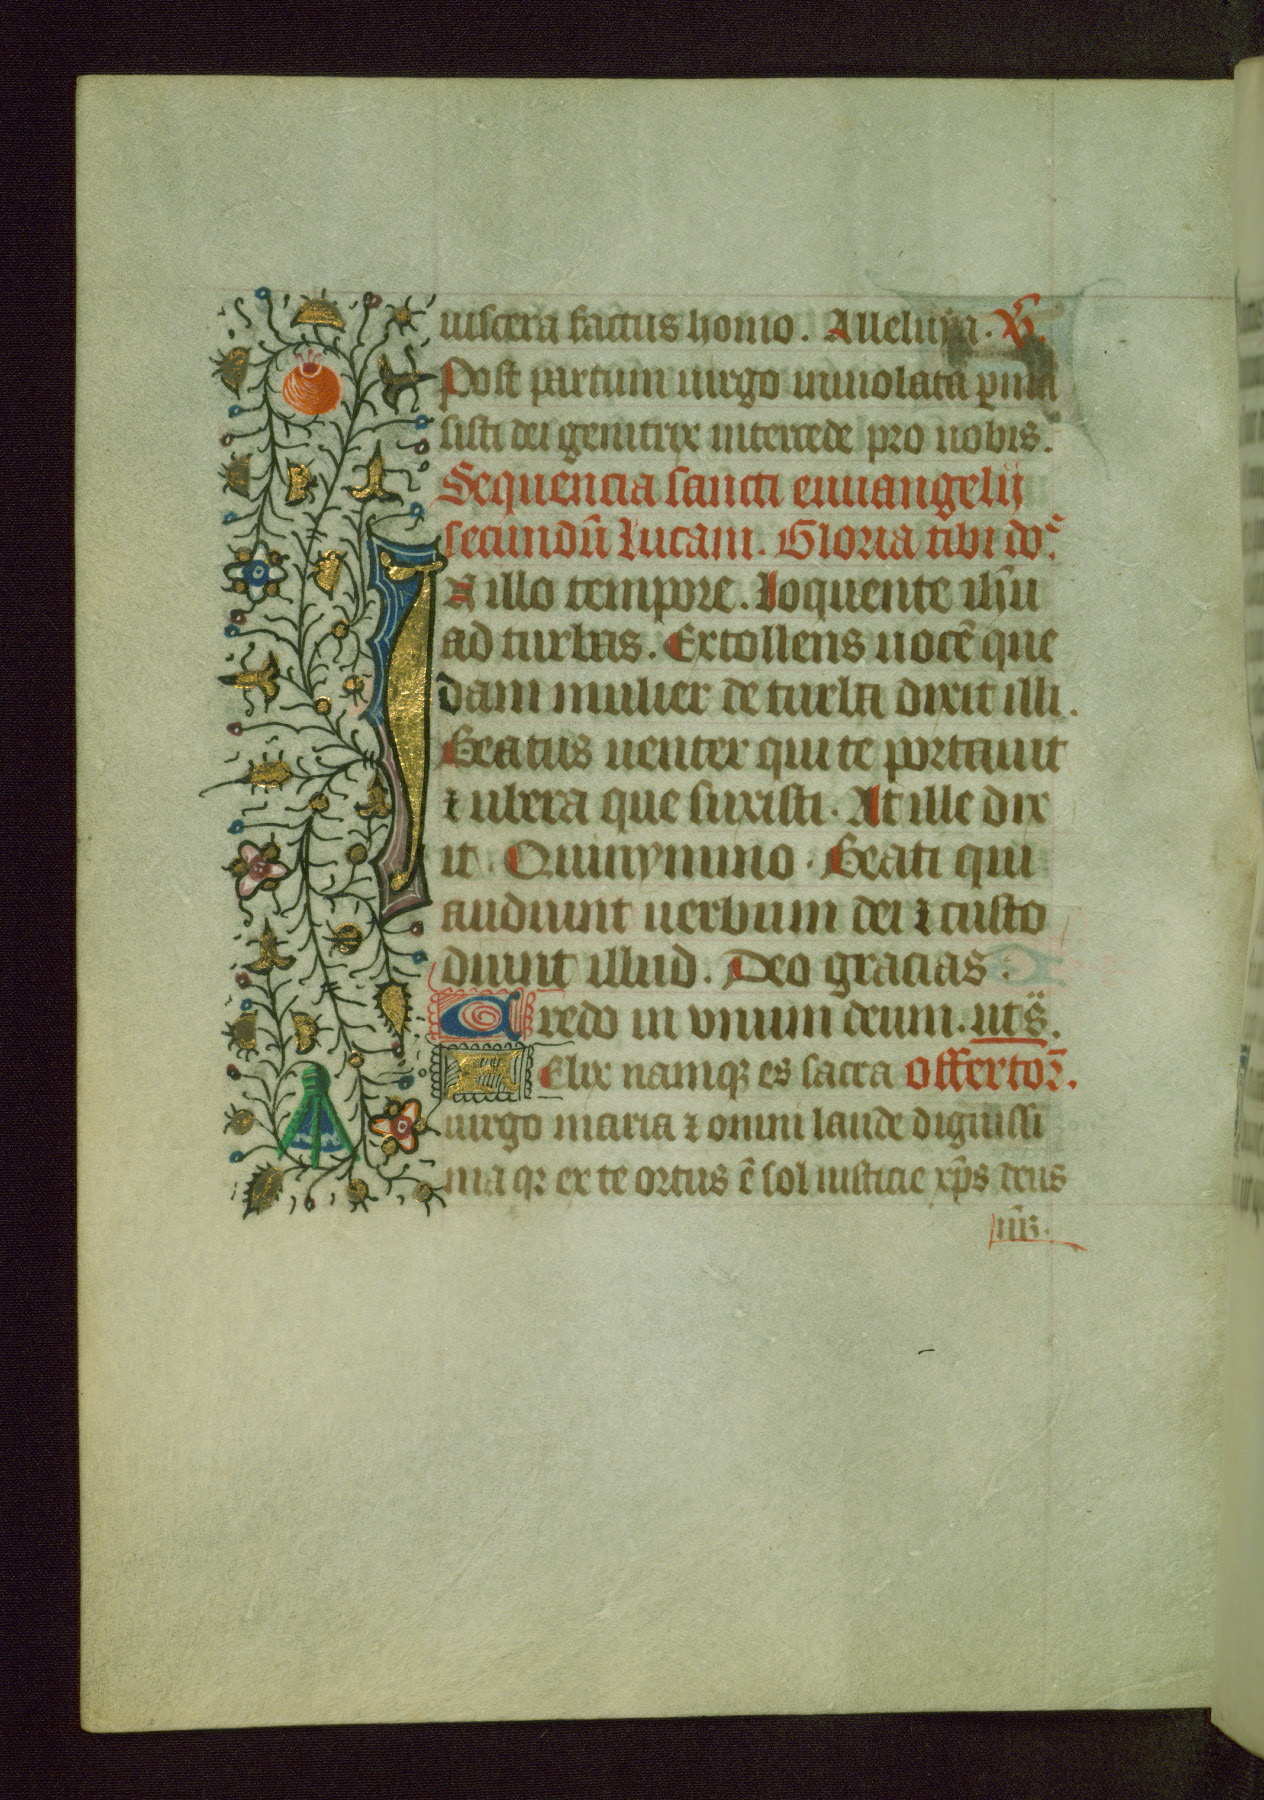 uiscera factus homo. Alleluya. V̄.
Post partum uirgo inuiolata ꝑma
sisti dei genitrix intercede pro nobis.
Sequencia sancti euuangelij
secundū Lucam. Gloria tibi do᷒.
In illo tempore. Loquente ihū
ad turbas. Extollens uocē que
dam mulier de turba dixit illi.
Beatus uenter qui te portauit
⁊ ubera que suxisti. At ille dix
it. Quinymmo. Beati qui
audiunt uerbum dei ⁊ custo
diunt illud. Deo gracias.
Credo in vnum deum. ut s̄.
Felix namqꝫ es sacra Offertoꝝ̄.
uirgo maria ⁊ omni laude dignissi
ma qꝛ ex te ortus ē sol iusticie xp̄s deus